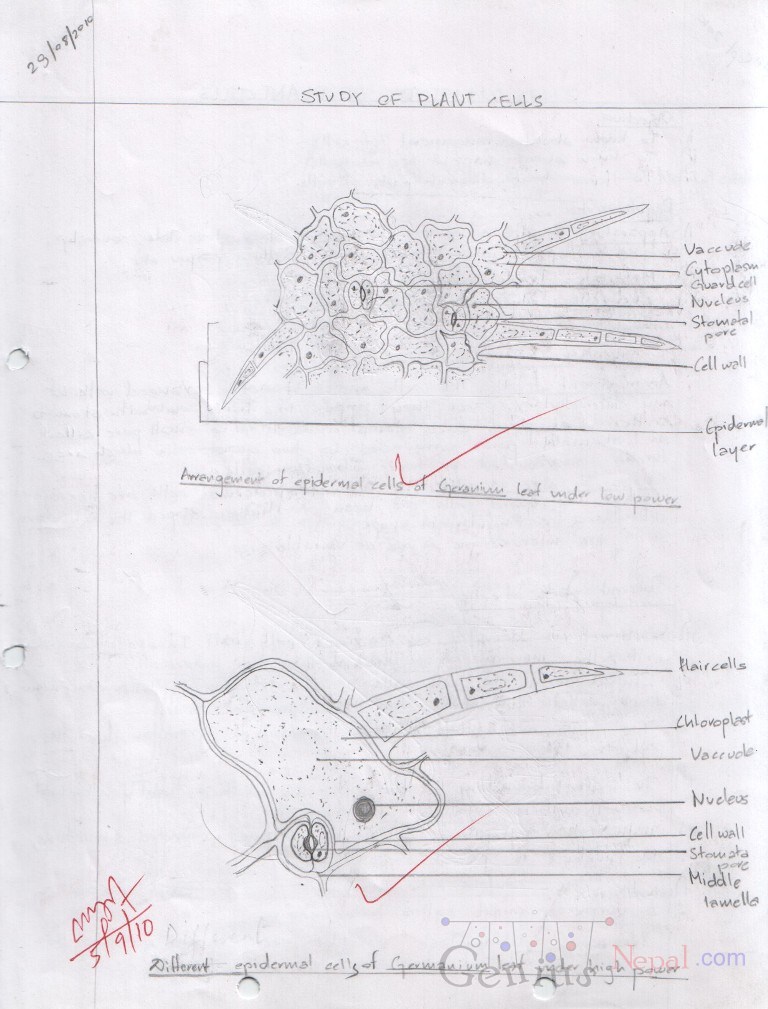 29/08/2010
STUDY OF PLANT CELLS
Vaccuole
Cytoplasm
Guard cell
Nucleus
Stomatal
pore
Cell wall
Epidermal
layer
Arrangement of epidermal cells of Geranium leaf under low power
Hair cells
Chloroplast
Vaccuole
Nucleus
Cell wall
Stomata
pore
Middle
lamella
5/9/10
Different epidermal cells of Germanium leaf under high power
Genius Nepal.com